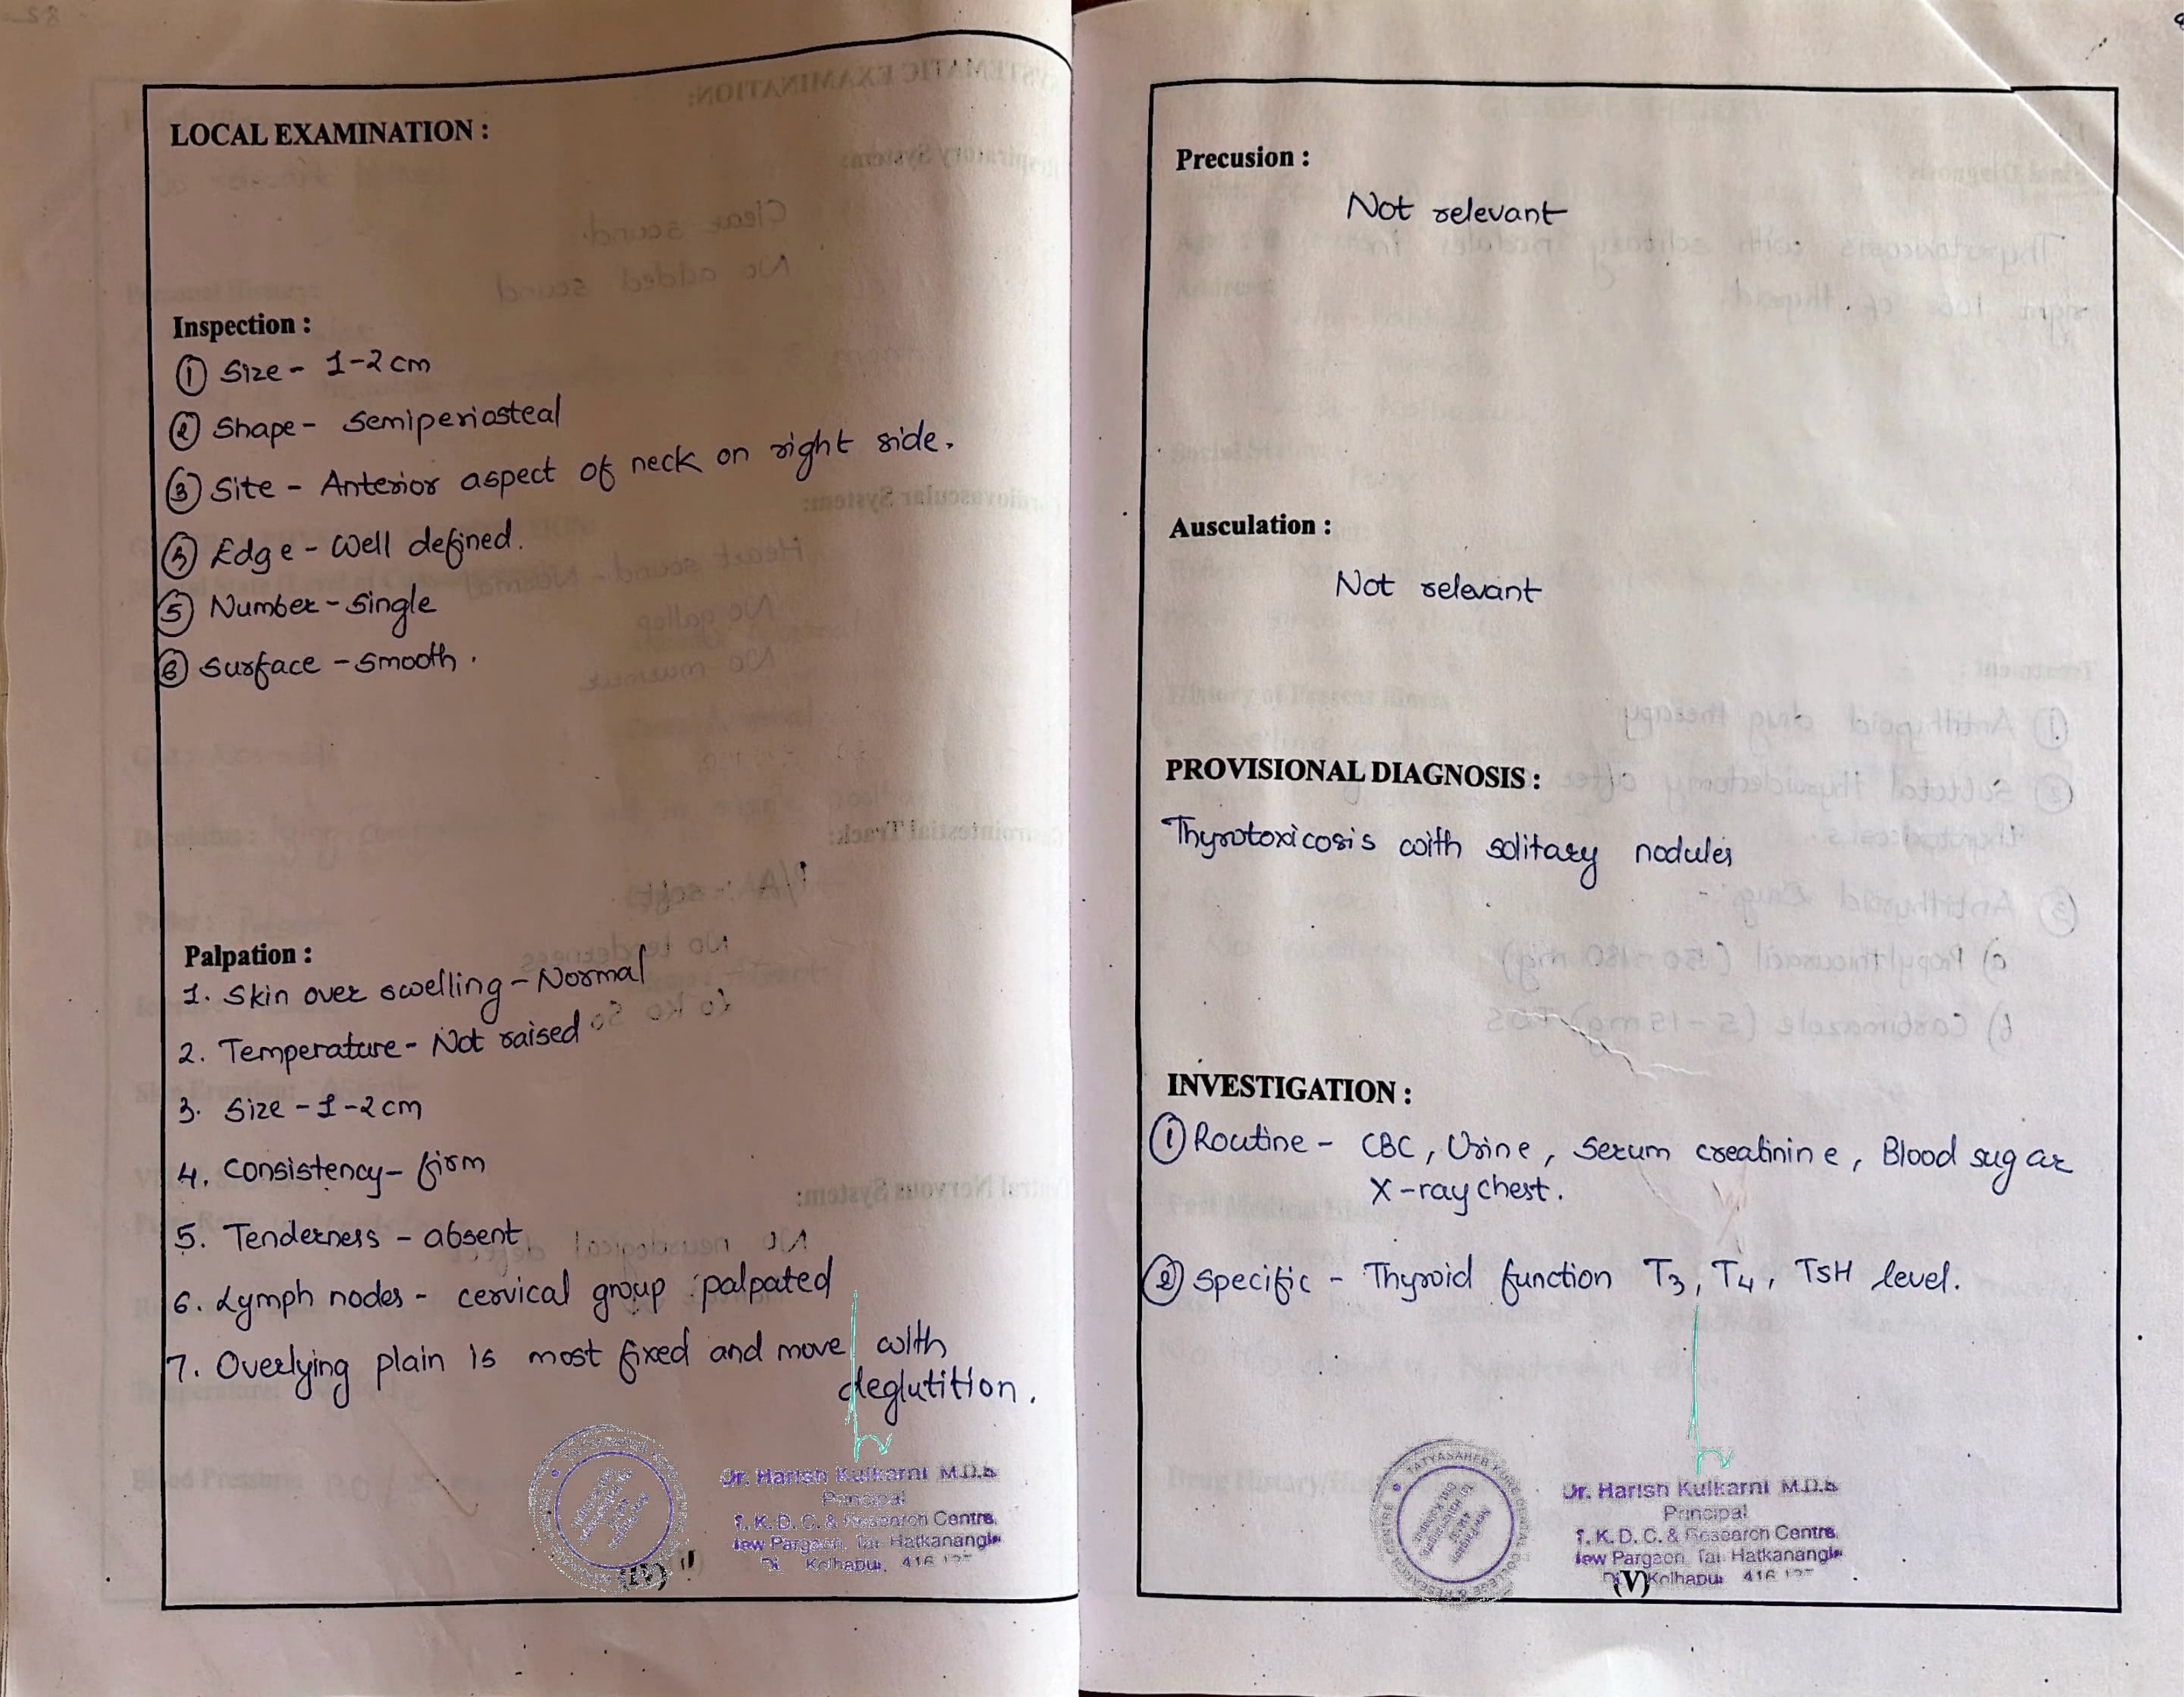 LOCAL EXAMINATION :
Inspection :
① Size - 1-2 cm
② Shape - Semiperiosteal
③ Site - Anterior aspect of neck on right side.
④ Edge - Well defined.
⑤ Number - Single
⑥ Surface - Smooth.
Palpation :
1. Skin over swelling - Normal
2. Temperature - Not raised
3. Size - 1-2 cm
4. Consistency - firm
5. Tenderness - absent
6. Lymph nodes - cervical group palpated
7. Overlying plain is most fixed and move with
deglutition.
Dr. Harish Kulkarni M.D.S
Principal
T. K. D. C. & Research Centre,
New Pargaon, Tal. Hatkanangle
Di Kolhapur, 416
(IV)
Precusion :
Not relevant
Ausculation :
Not relevant
PROVISIONAL DIAGNOSIS :
Thyrotoxicosis with solitary nodules
INVESTIGATION :
① Routine - CBC, Urine, Serum creatinine, Blood sugar
X-ray chest.
② Specific - Thyroid function T3, T4, TSH level.
TATYASAHEB KORE DENTAL COLLEGE & RESEARCH CENTRE
Dr. Harish Kulkarni M.D.S
Principal
T. K. D. C. & Research Centre,
New Pargaon, Tal. Hatkanangle
Kolhapur 416
(V)